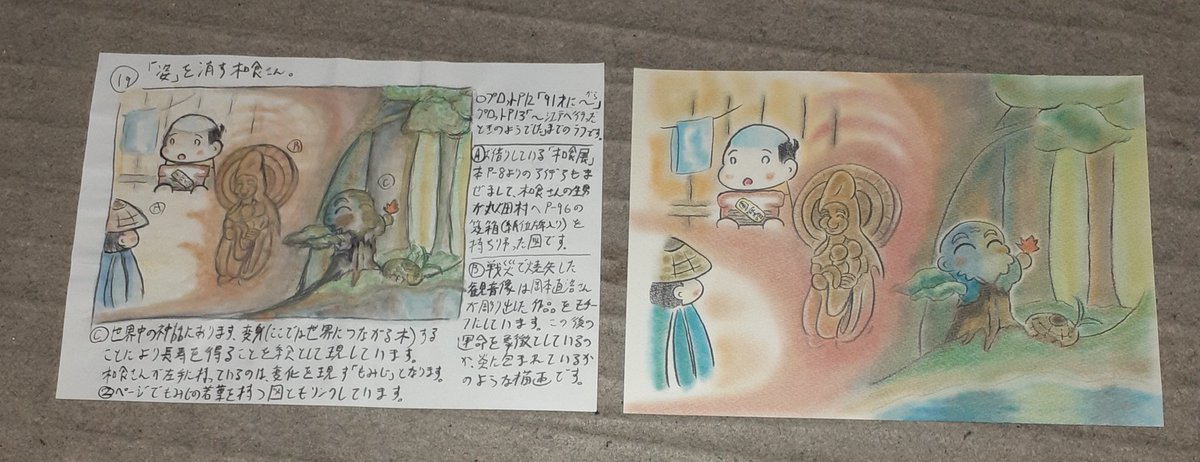 19 「姿」を消す和食さん。
○プロットP12「91才に〜」から
プロットP13「〜江戸へ行った
ときのようでした」までのラフです。
Ⓐお借りしている「和食展」
本P-8よりのアイデアもま
ぜまして、和食さんの生男
が丸田村へP-96の
笈箱(紙位牌入り)を
持ち帰った図です。
Ⓑ戦災で焼失した
観音像は岡本直治さん
が彫り出した作品をモチー
フにしています。この後の
運命を象徴としているの
か、炎に包まれているか
のような描画です。
Ⓒ世界中の神話にあります、変身(ここでは世界につながる木)する
ことにより長寿を得ることを予兆として現しています。
和食さんが左手に持っているのは、変化を現す「もみじ」となります。
②ページでもみじの若葉を持つ図ともリンクしています。
Ⓐ
Ⓑ
Ⓒ